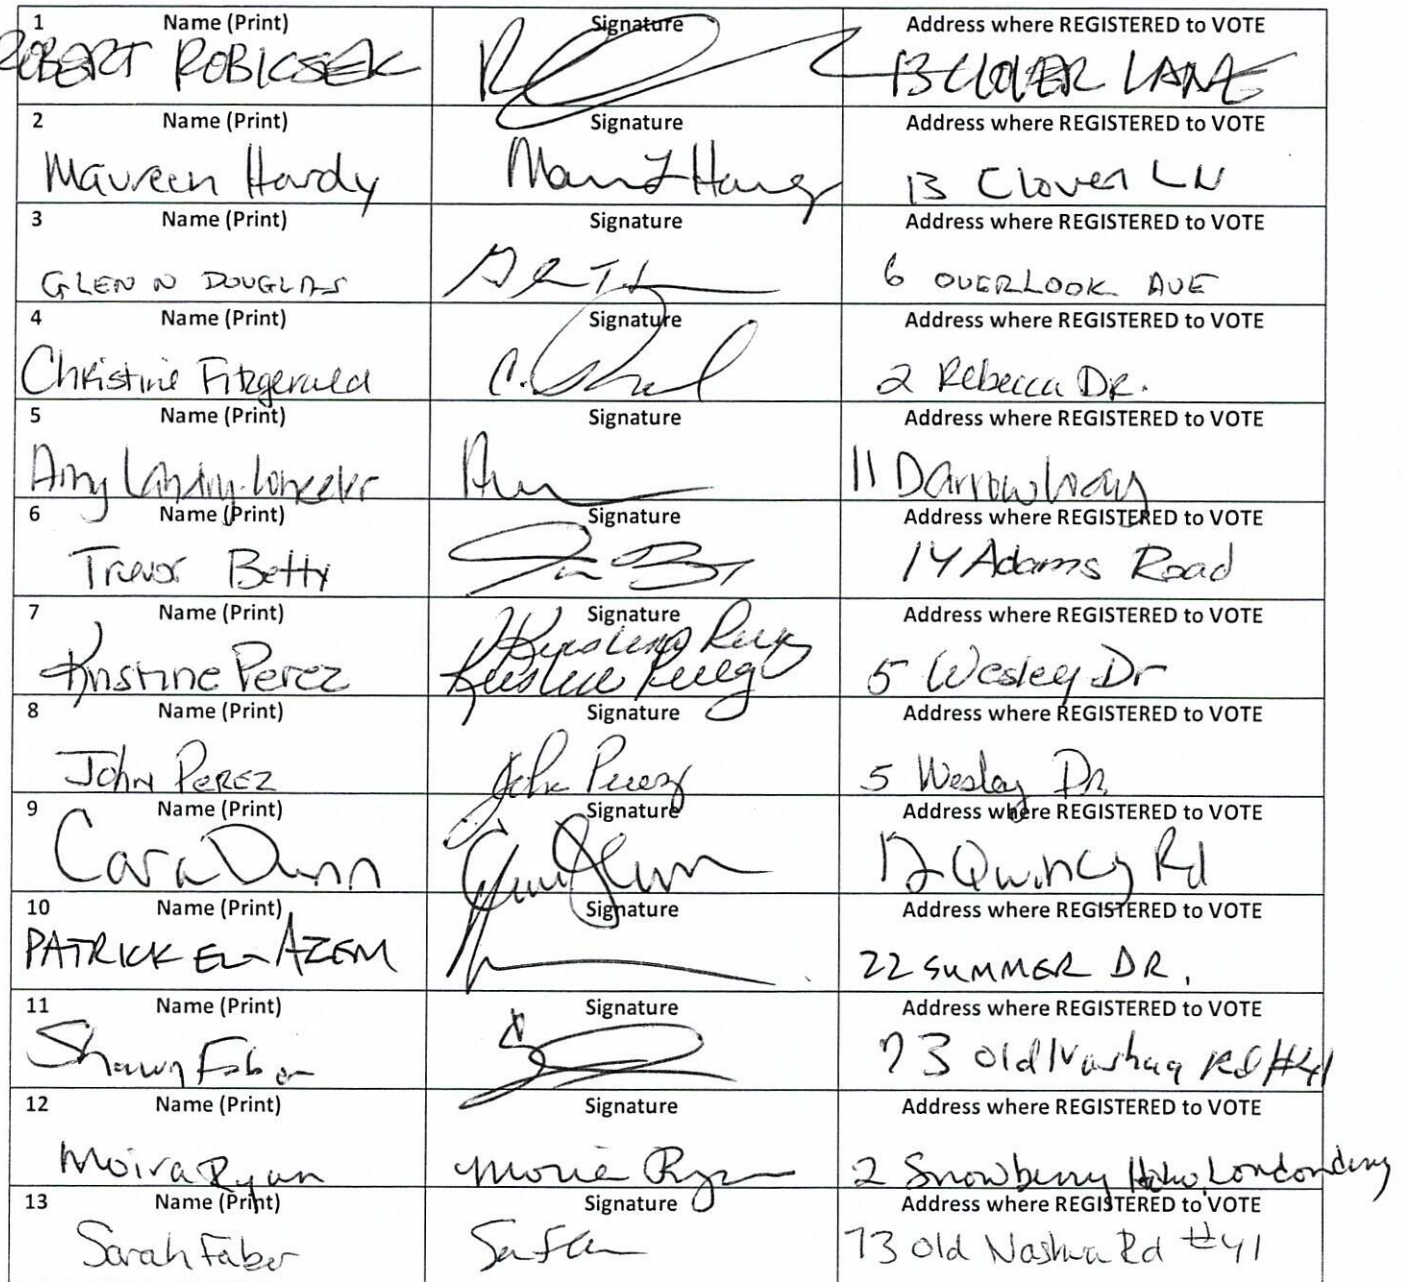 1 Name (Print) Signature Address where REGISTERED to VOTE
ROBERT ROBICSEK 13 CLOVER LANE
2 Name (Print) Signature Address where REGISTERED to VOTE
Maureen Hardy 13 Clover LN
3 Name (Print) Signature Address where REGISTERED to VOTE
GLEN N DOUGLAS 6 OVERLOOK AVE
4 Name (Print) Signature Address where REGISTERED to VOTE
Christine Fitzgerald 2 Rebecca DR.
5 Name (Print) Signature Address where REGISTERED to VOTE
Amy Landry-Wheeler 11 Darrow Way
6 Name (Print) Signature Address where REGISTERED to VOTE
Trevor Betty 14 Adams Road
7 Name (Print) Signature Address where REGISTERED to VOTE
Kristine Perez 5 Wesley Dr
8 Name (Print) Signature Address where REGISTERED to VOTE
John PEREZ John Perez 5 Wesley Dr.
9 Name (Print) Signature Address where REGISTERED to VOTE
Cara Dunn 12 Quincy Rd
10 Name (Print) Signature Address where REGISTERED to VOTE
PATRICK EL-AZEM 22 SUMMER DR.
11 Name (Print) Signature Address where REGISTERED to VOTE
Shawn Faber 73 Old Nashua Rd #41
12 Name (Print) Signature Address where REGISTERED to VOTE
Moira Ryan 2 Snowberry Londonderry
13 Name (Print) Signature Address where REGISTERED to VOTE
Sarah Faber 73 Old Nashua Rd #41